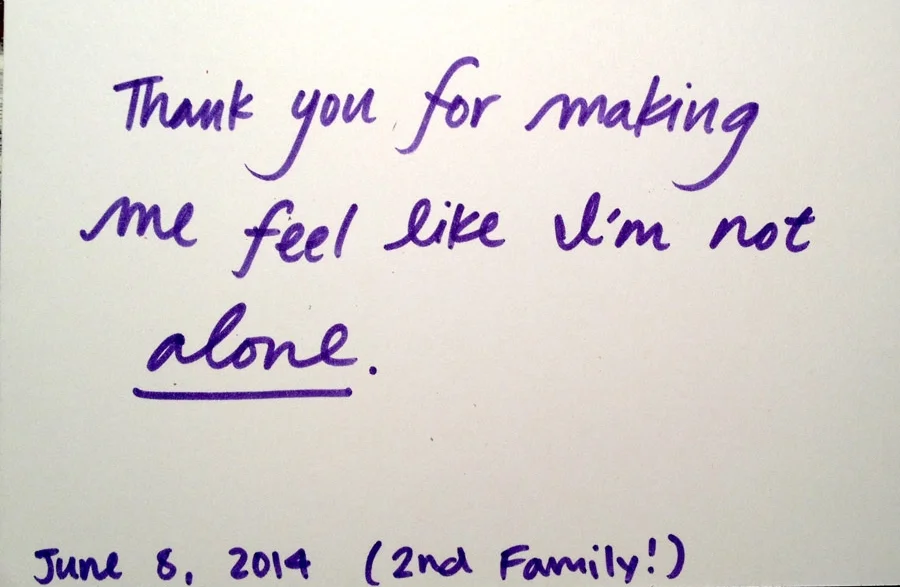 Thank you for making
me feel like I'm not
alone.
June 8, 2014 (2nd Family!)